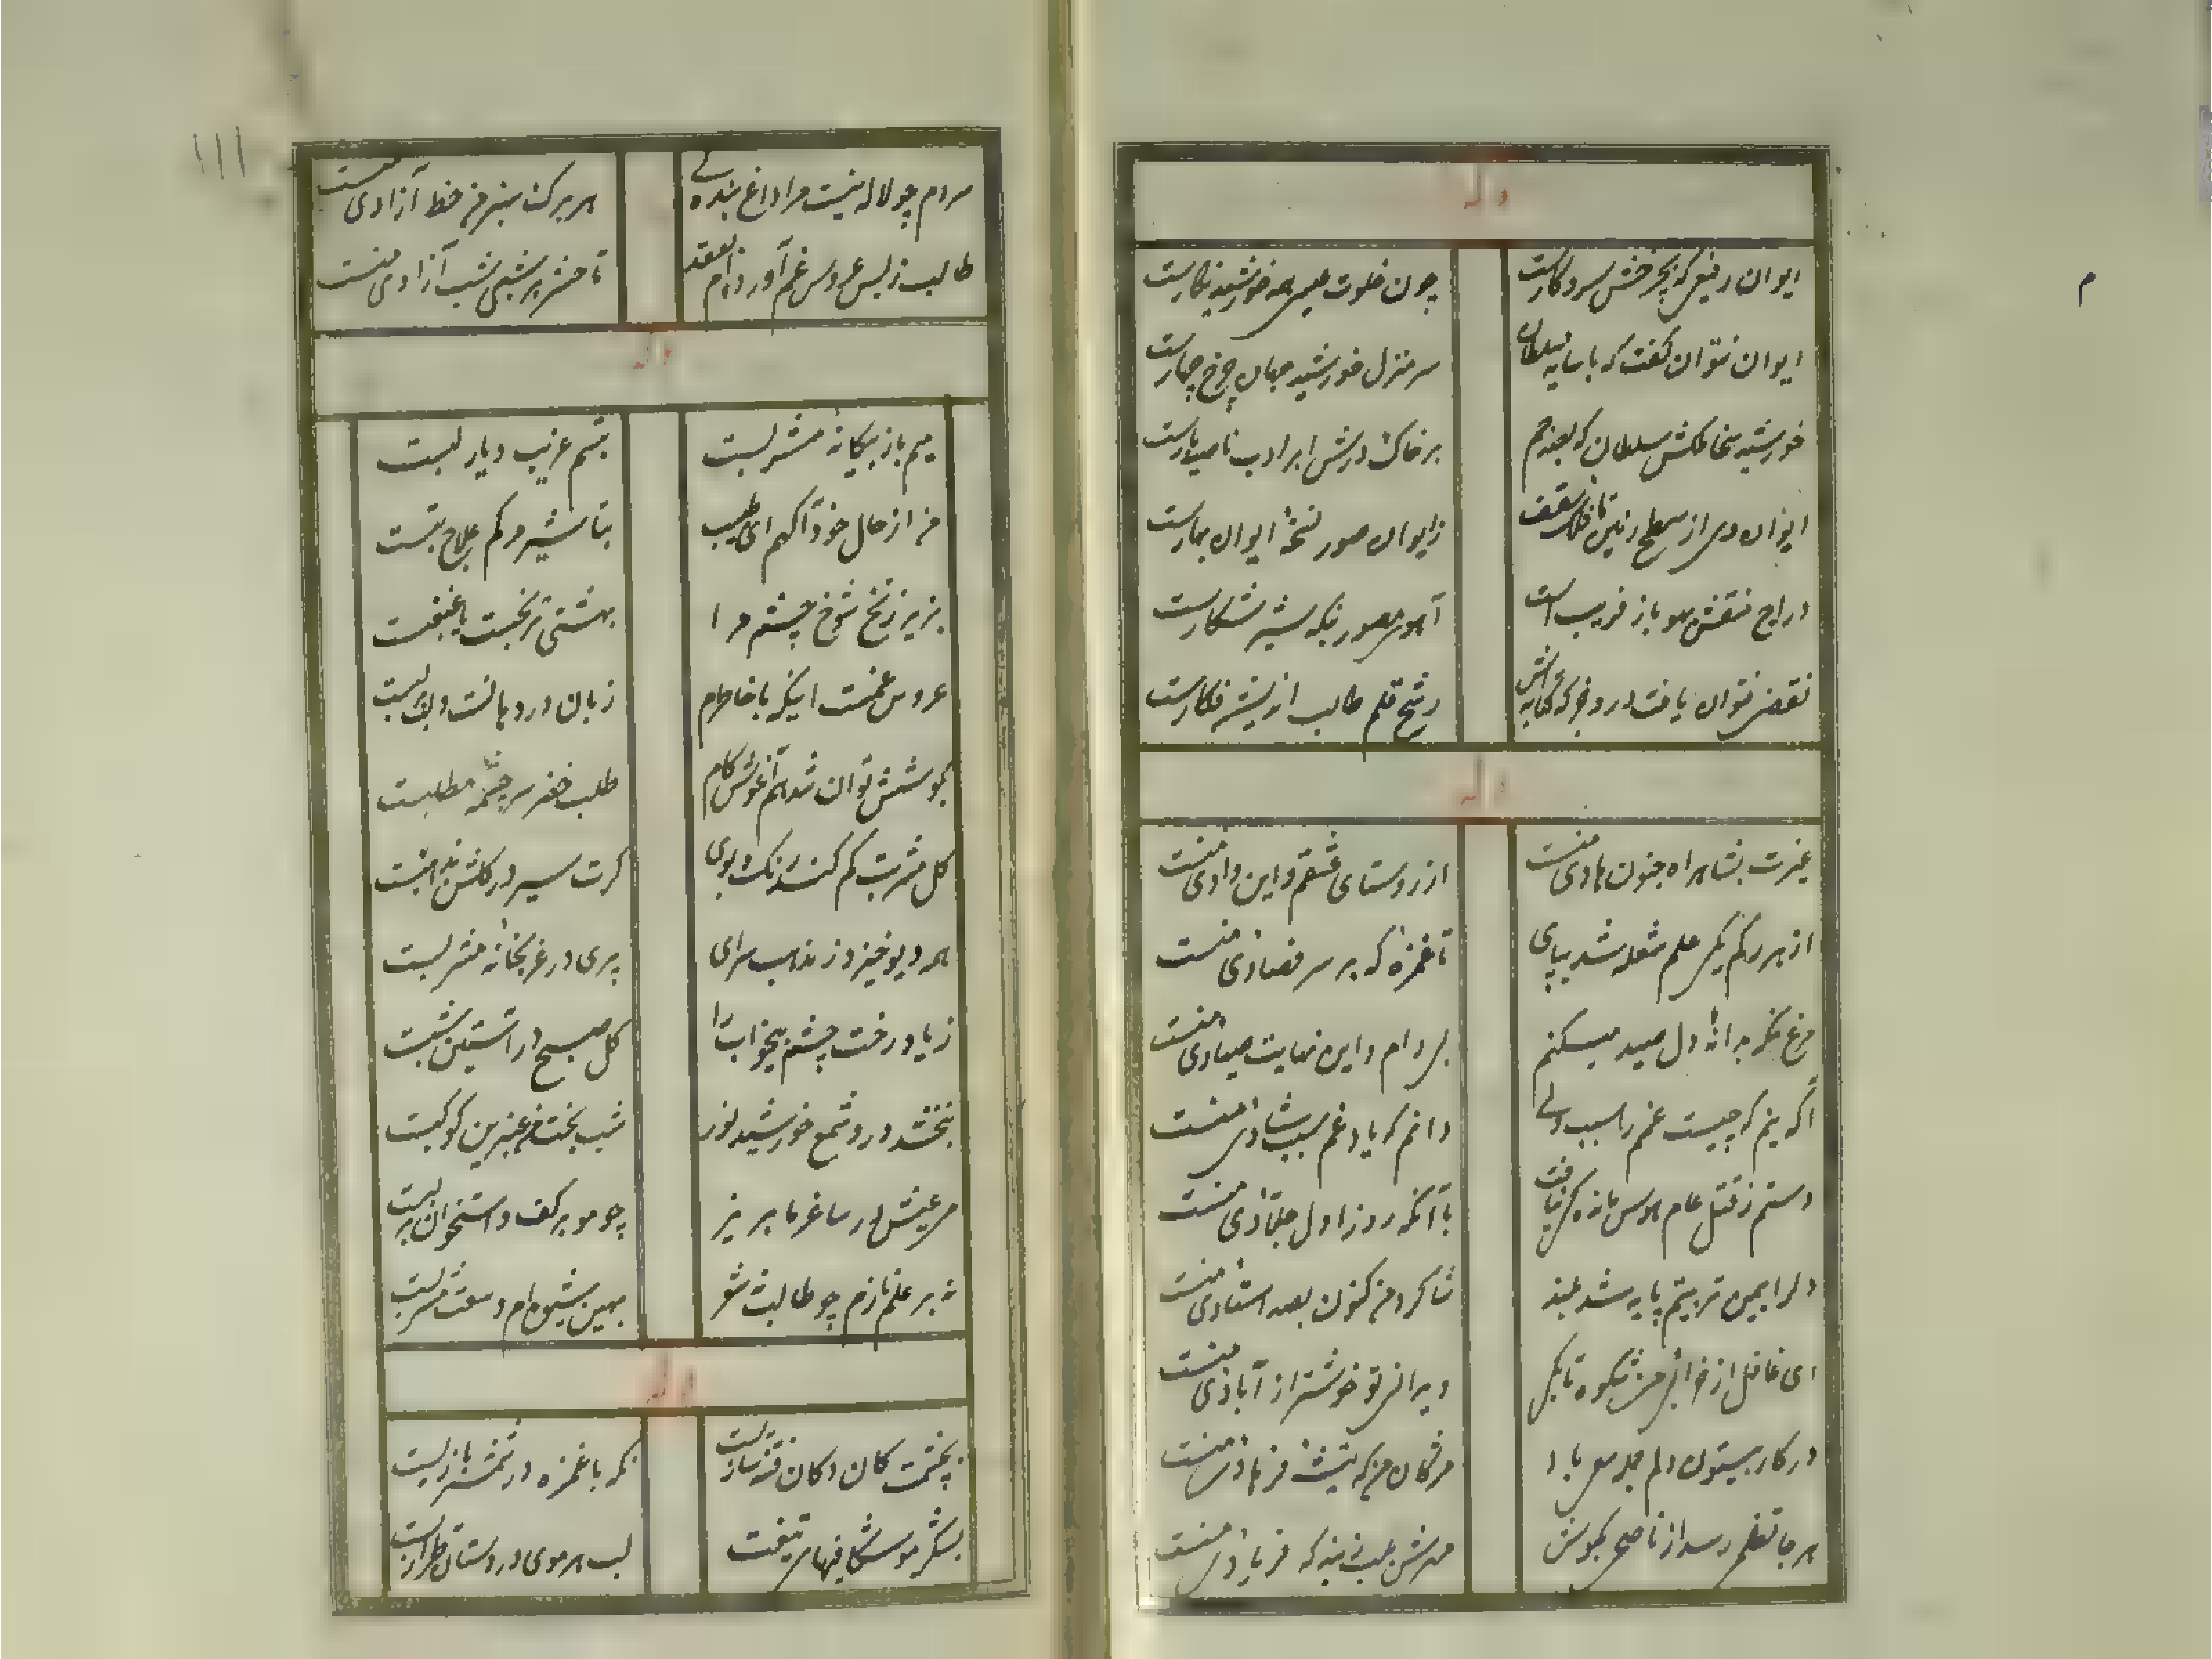 وله
ایوان رفیعی که بچرخش سر و کارست
چون خلوت عیسی همه خورشید نگارست
ایوان نتوان گفت که با سایه سلطان
سر منزل خورشید جهان چرخ چهارست
خورشید سخا سلطان که بصد چشم
بر خاک درش ابر ادب ناصیه بارست
ایوان وی از سطح زمین تا فلک سقف
ز ایوان صور نسخهٔ ایوان بهارست
دراج منقش باز فریب است
آهوی مصور شیر شکارست
نقصی نتوان یافت درو غیر که
رشح قلم طالب اندیشه فکارست
وله
غیرت بشاهراه جنون هادی منست
از روستای عشقم و این وادی منست
از هر رگم یکی علم شعله شد بپای
تا غمزهٔ که بر سر فصادی منست
مرغ بدانهٔ دل صید میکنم
دام و این نهایت صیادی منست
آگه نیم که چیست غم را سبب ولی
دانم که یاد غم سبب شادی منست
دستم ز قتل عام هوس
با آنکه روز اول جلادی منست
تربیتم پایه شد بلند
شاگرد من کنون بصد استادی منست
ای غافل از خرابی من شکوه تا بکی
ویرانی تو خوشتر از آبادی منست
در کار بیستون دلم جد
مژگان من که تیشهٔ فرهادی منست
هر جا تظلم رسد از ناصح بگوش
که فریادی منست
مردم چو لاله نیست مرا داغ بنده
هر برگ سبز من خط آزادی منست
طالب ز بس عروس غم آورده‌ام بعقد
تا حشر هر شبی شب آزادی منست
وله
میم باز بیگانهٔ مشربست
بتم غریب دیار لبست
من از حال خود آگهم ای طبیب
تباشیر و کم علاج تبست
بزیر زنخ شوخ چشم مرا
بهشتی ترنجست یا غبغبست
عروس غمت اینکه با خاطرم
زبان در دهانست و لب بر لبست
بکوشش توان شد هم آغوش کام
طلب خضر سرچشمهٔ مطلبست
گل مشربت کم کند رنگ و بوی
گرت سیر در گلشن مذهبست
همه دیو خیزد ز مذهب سرای
پری در غریبخانهٔ مشربست
ز یاد رخت چشم بیخواب را
گل صبح در آستین شبست
نبخشد درو شمع خورشید نور
شب بختم عنبرین کوکبست
می عیش در ساغر ما مریز
چو مو بر کف و استخوان بر لبست
نه بر علم نازم چو طالب نه شعر
بهین شیوه‌ام وسعت مشربست
وله
بچشمت کان دکان فتنه سازیست
نگه با غمزه در شمشیر بازیست
بشکر مو شکافیهای تیغت
لب هر موی در دستان طرازیست
۱۱۱